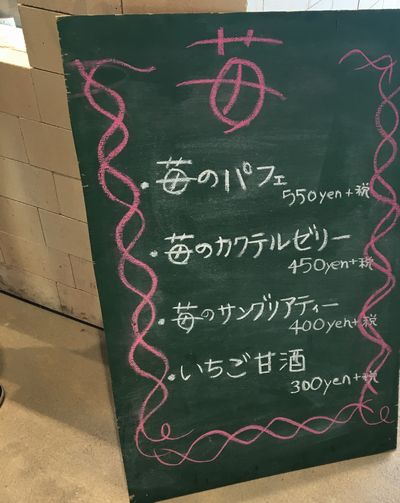 苺
・苺のパフェ
550yen+税
・苺のカクテルゼリー
450yen+税
・苺のサングリアティー
400yen+税
・いちご甘酒
300yen+税